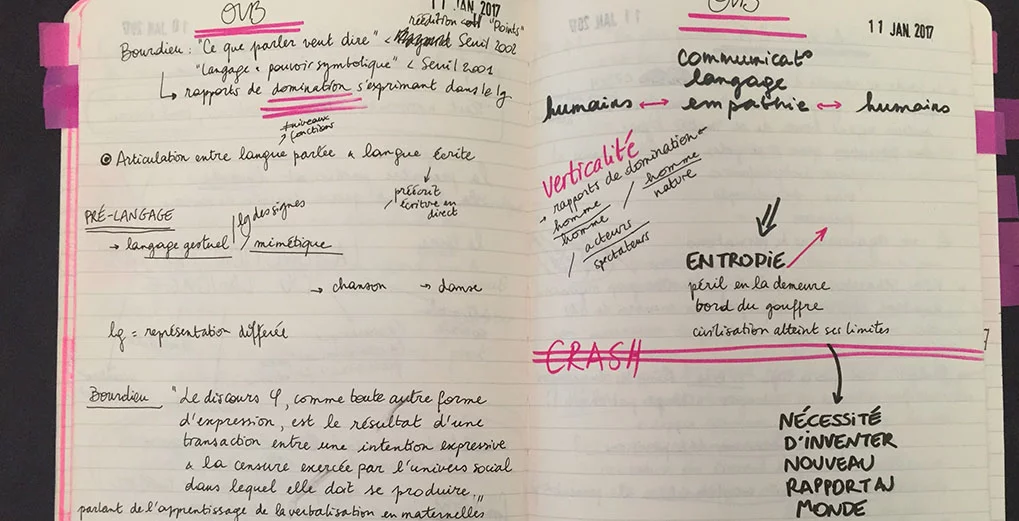 OVB
11 JAN. 2017
réédition coll "Points"
Bourdieu : "Ce que parler veut dire" < Seuil 2002
"Langage & pouvoir symbolique" < Seuil 2001
↳ rapports de domination s'exprimant dans le lg
≠ niveaux
fonctions
Articulation entre langue parlée & langue écrite
↓
prétexte
/ écriture en
direct
PRÉ-LANGAGE
→ langage gestuel / lg des signes / mimétique
→ chanson → danse
lg = représentation différée
Bourdieu "Le discours φ, comme toute autre forme
d'expression, est le résultat d'une
transaction entre une intention expressive
& la censure exercée par l'univers social
dans lequel elle doit se produire,"
parlant de l'apprentissage de la verbalisation en maternelles
OVB
11 JAN. 2017
communicat°
langage
humains ↔ empathie ↔ humains
verticalité
→ rapports de domination
homme / homme
homme nature
/ acteurs
spectateurs
ENTROPIE
péril en la demeure
bord du gouffre
civilisation atteint ses limites
CRASH
7
NÉCESSITÉ
D'INVENTER
NOUVEAU
RAPPORT AU
MONDE